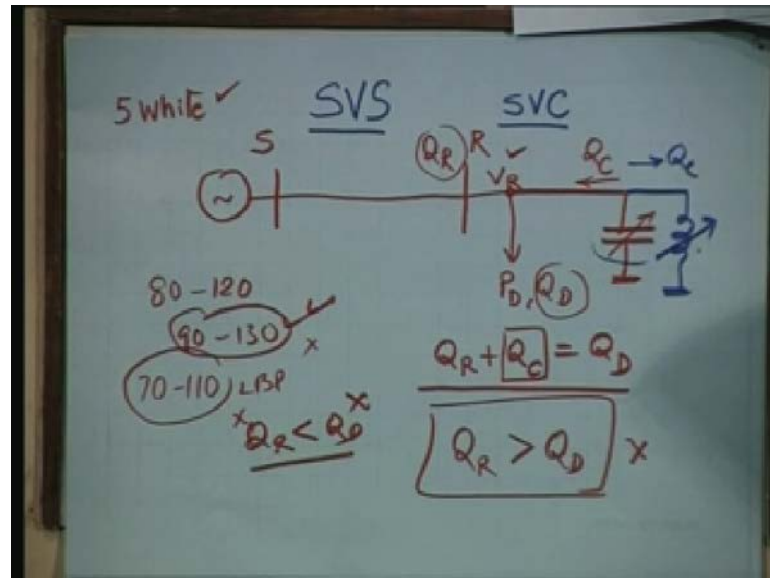 5 white ✓ SVS SVC
S Q_R R ✓ Q_C → Q_C
V_R
~
P_D, Q_D
80-120
90-130 ✓ x
70-110, LBP
x Q_R < Q_D x
Q_R + Q_C = Q_D
Q_R > Q_D x